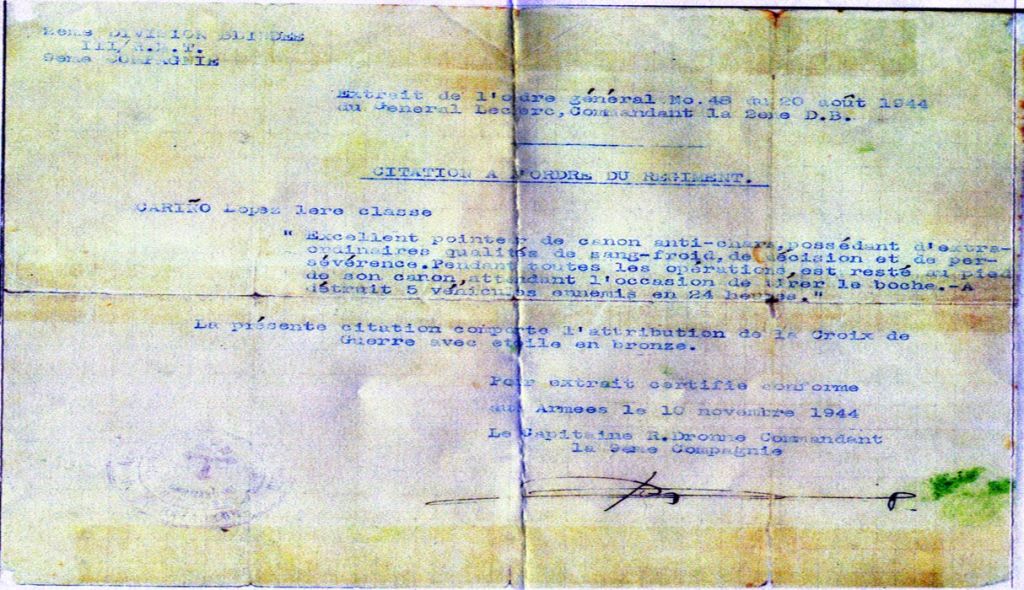 2ème DIVISION BLINDEE
III/R.M.T.
9ème COMPAGNIE
Extrait de l'ordre général No.48 du 20 août 1944
du General Leclerc, Commandant la 2eme D.B.
CITATION A L'ORDRE DU REGIMENT.
CARIÑO Lopez 1ere classe
" Excellent pointeur de canon anti-chars, possédant d'extra-
ordinaires qualités de sang-froid, de décision et de per-
sévérence. Pendant toutes les opérations, est resté au pied
de son canon, attendant l'occasion de tirer le boche.-A
détruit 5 véhicules ennemis en 24 heures."
La présente citation comporte l'attribution de la Croix de
Guerre avec etoile en bronze.
Pour extrait certifie conforme
aux Armees le 10 novembre 1944
Le Capitaine R.Dronne Commandant
la 9eme Compagnie